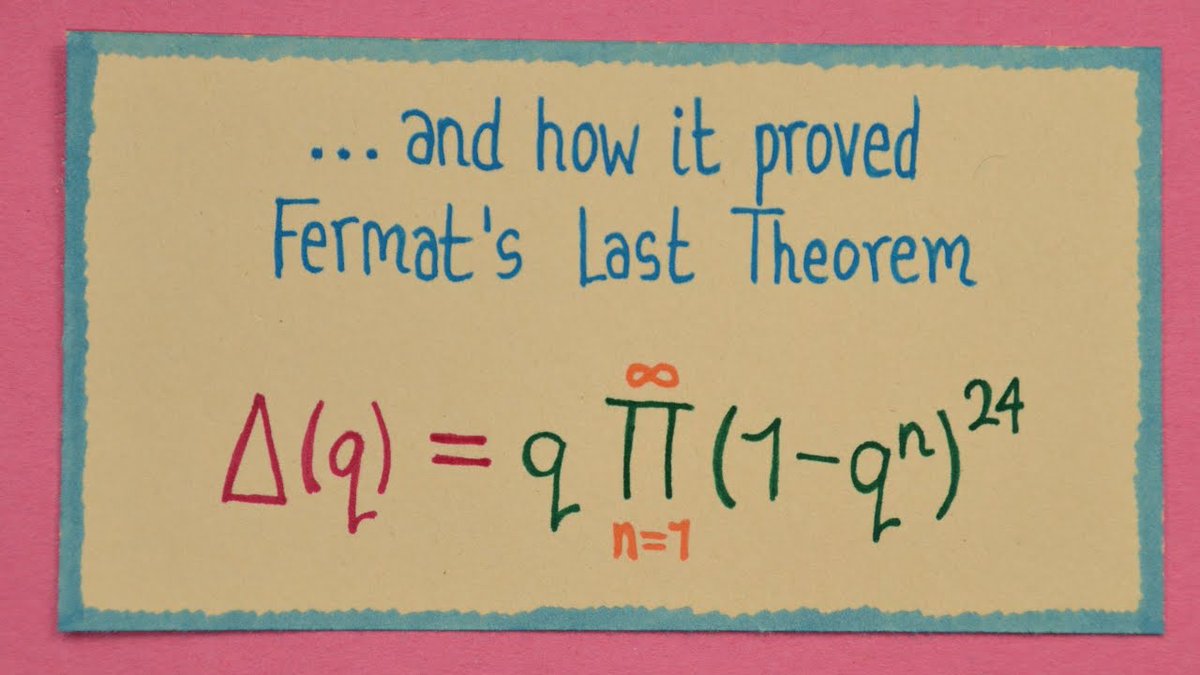 ... and how it proved
Fermat's Last Theorem
Δ(q) = q ∏_{n=1}^{∞} (1-qⁿ)²⁴